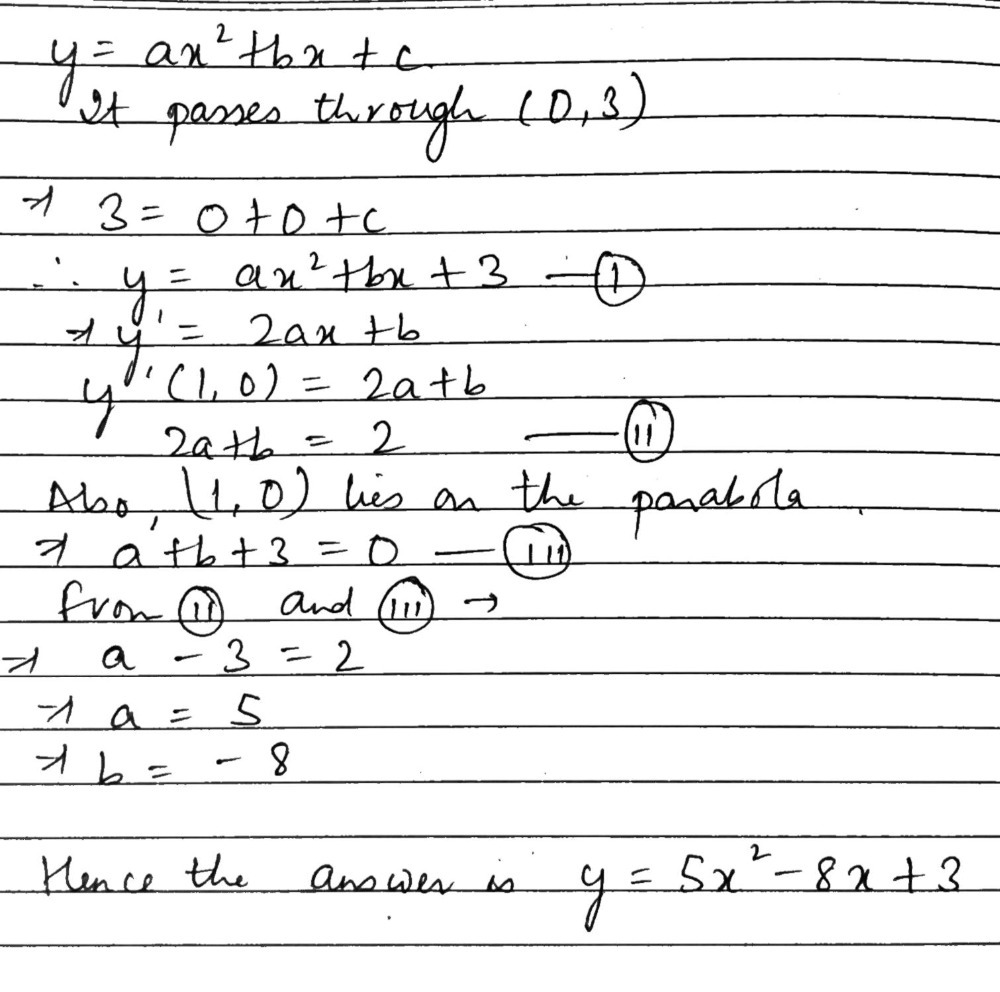 y = ax² + bx + c
It passes through (0,3)
⇒ 3 = 0 + 0 + c
∴ y = ax² + bx + 3 — (I)
⇒ y' = 2ax + b
y'(1,0) = 2a + b
2a + b = 2 — (II)
Also, (1,0) lies on the parabola.
⇒ a + b + 3 = 0 — (III)
from (II) and (III) →
⇒ a - 3 = 2
⇒ a = 5
⇒ b = - 8
Hence the answer is y = 5x² - 8x + 3